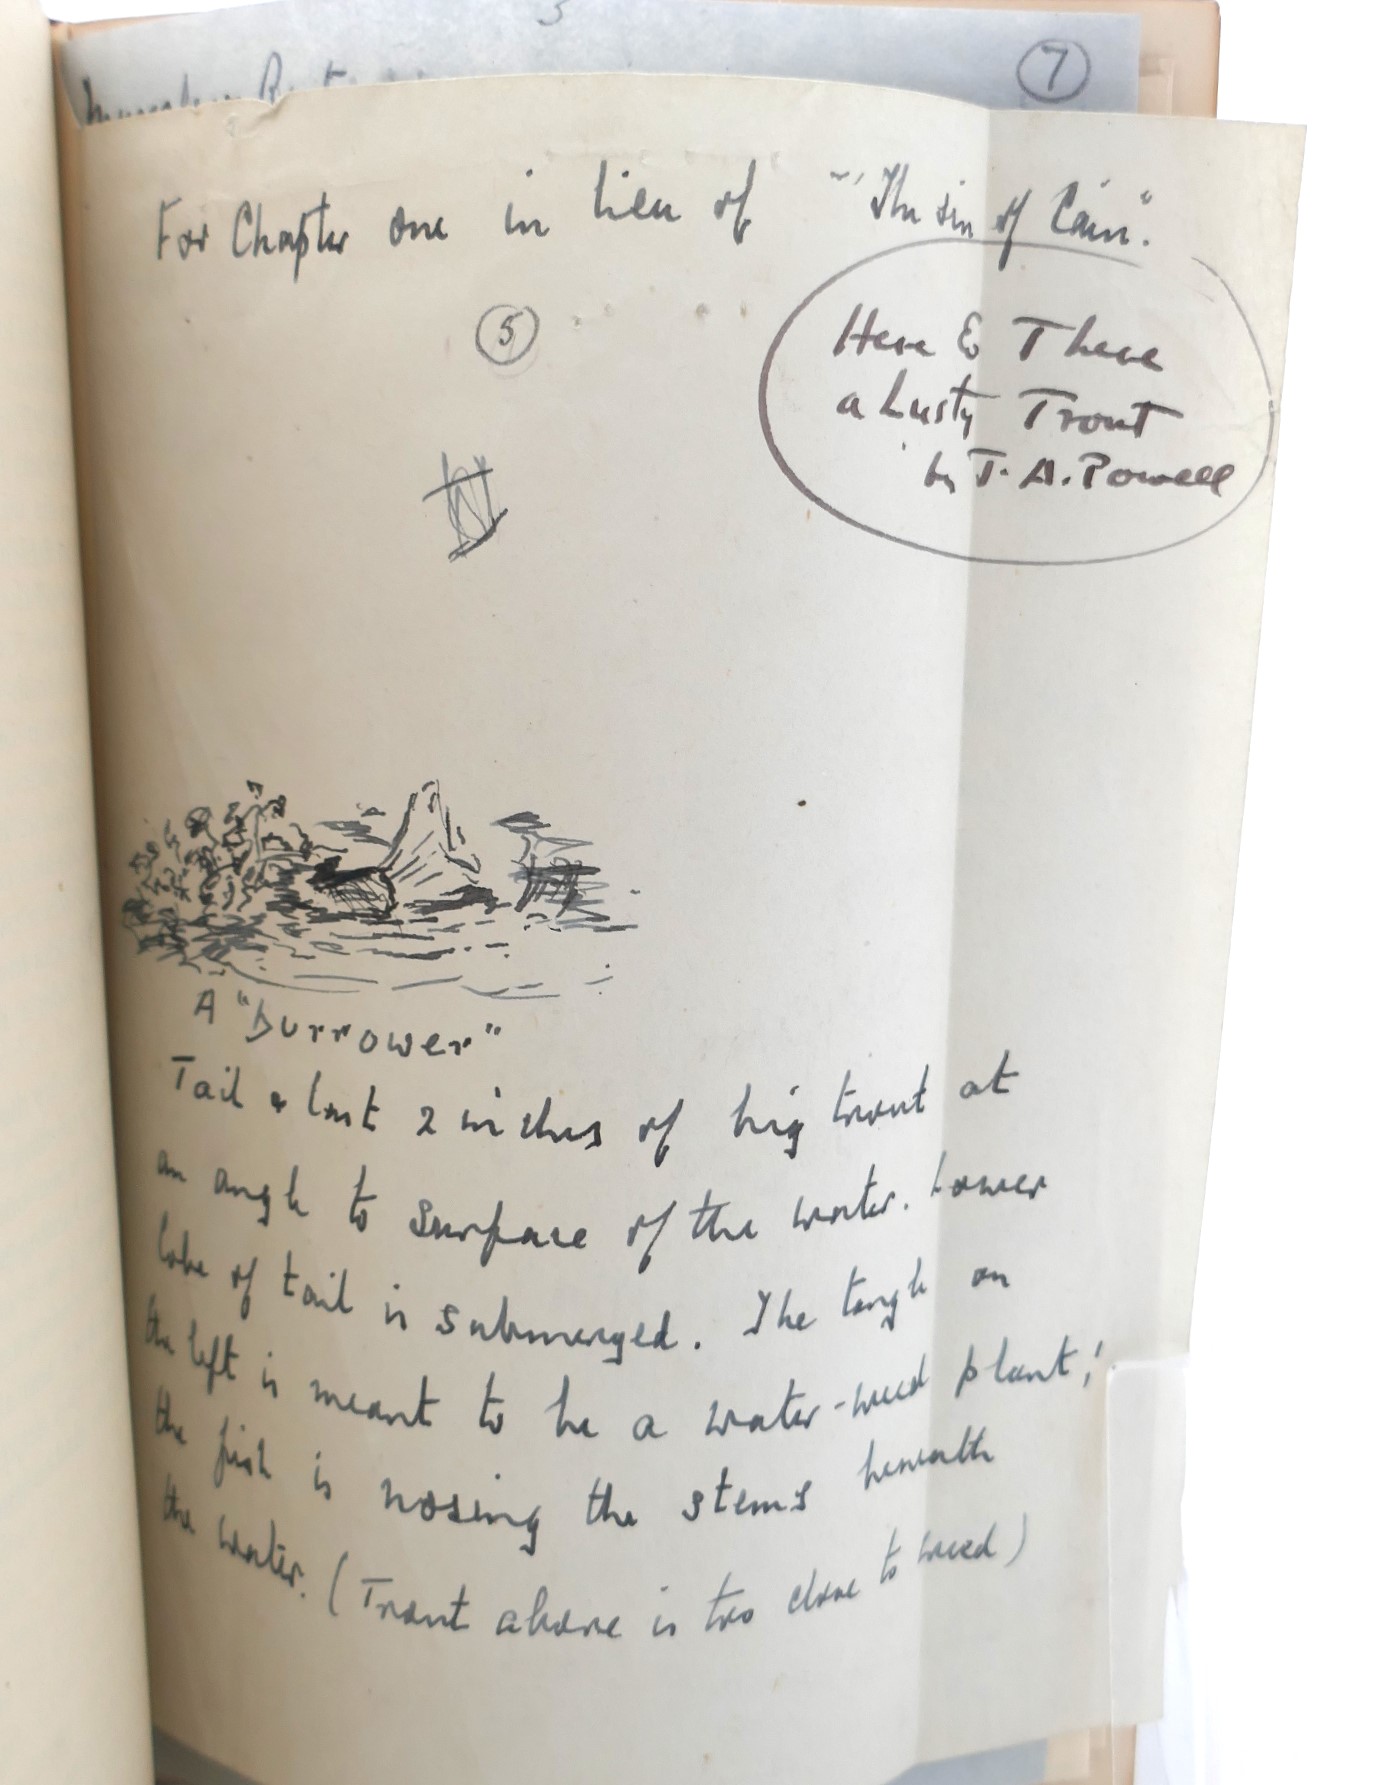 7
For Chapter one in lieu of "The sin of Cain".
5
Here & There
a Lusty Trout
by T. A. Powell
A "Burrower"
Tail & last 2 inches of big trout at
an angle to surface of the water. Lower
lobe of tail is submerged. The tangle on
the left is meant to be a water-weed plant;
the fish is nosing the stems beneath
the water. (Trout above is too close to weed)